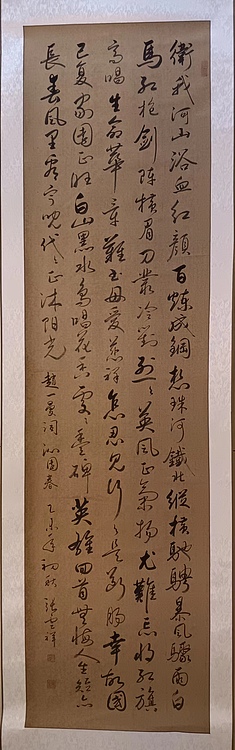 衛我河山浴血紅顏百煉成鋼想珠河鐵北縱橫馳騁暴風驟雨白
馬紅槍劍陣橫眉刀叢冷對烈々英風正氣揚尤難忘將紅旗
高唱生命華章難書母愛慈祥思兒行々是斷腸幸故國
已复家園正旺白山黑水鳥唱花香處々豐碑英雄回首無悔人生短亦
長春風里看寧兒代々正沐陽光 趙一曼詞沁園春 乙未年初秋 張雲祥